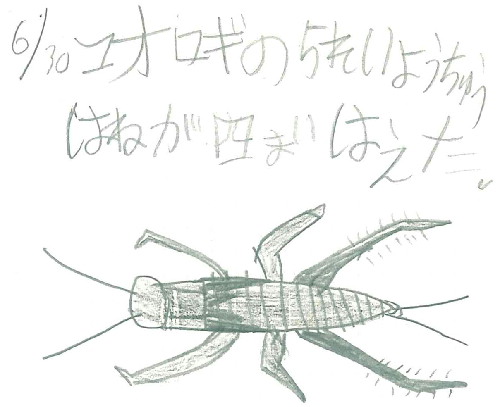 6/30 コオロギの5れいようちゅう
はねが四まいはえた。